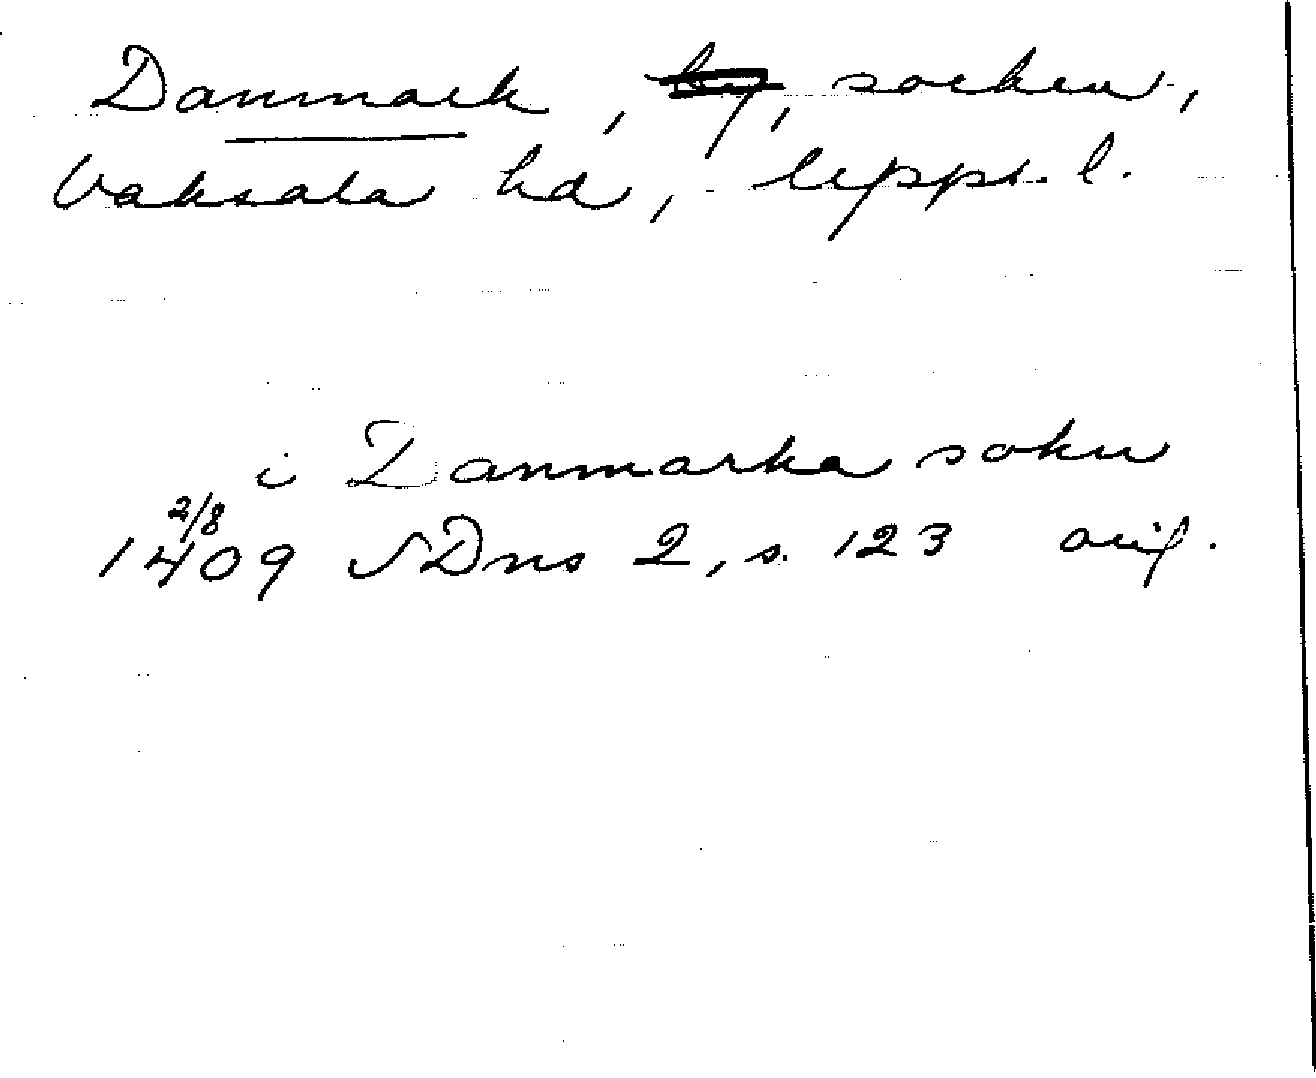 Danmark, by, socken,
Vaksala hd, Upps. l.
i Danmarka sokn
2/8
1409 SDns 2, s. 123 orig.